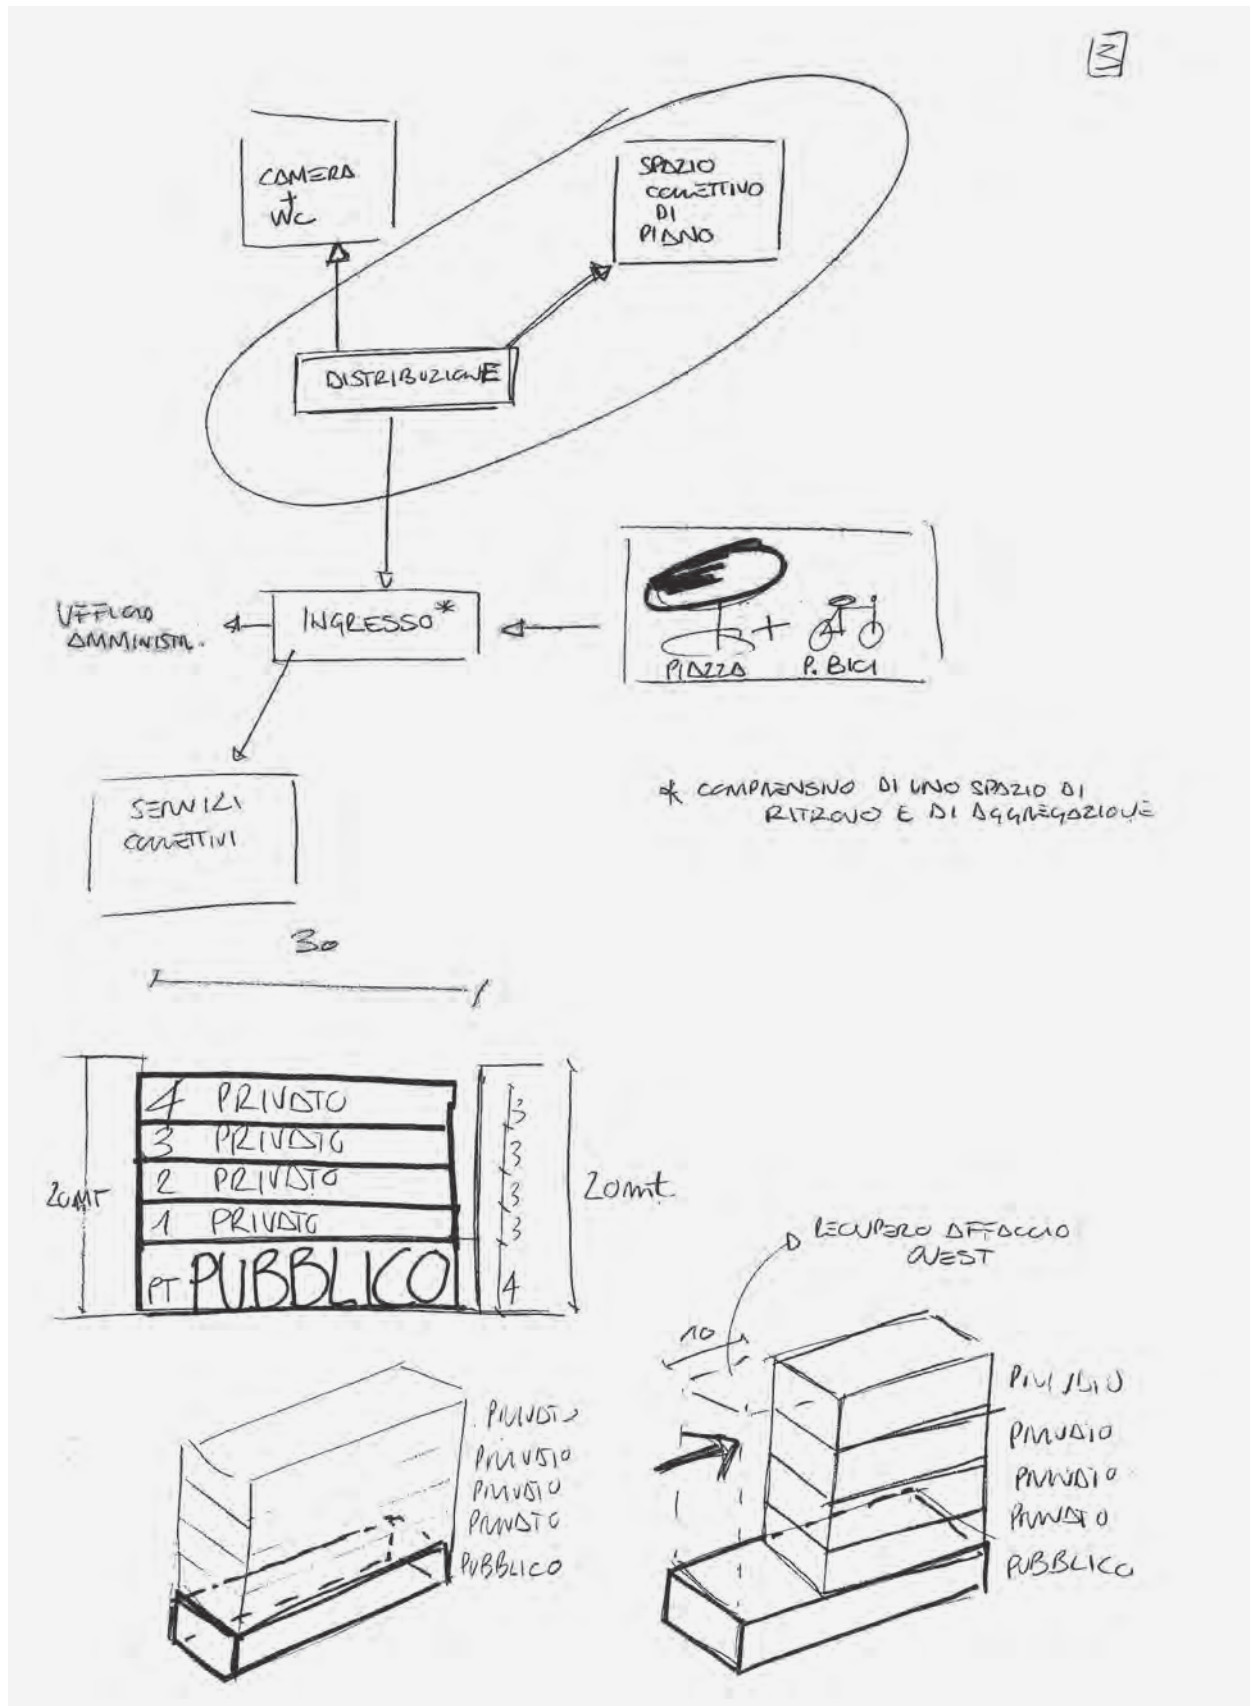 3
CAMERA
+
WC
SPAZIO
COLLETTIVO
DI
PIANO
DISTRIBUZIONE
UFFICIO
AMMINISTR.
INGRESSO*
PIAZZA
+
P. BICI
SERVIZI
COLLETTIVI
* COMPRENSIVO DI UNO SPAZIO DI
RITROVO E DI AGGREGAZIONE
30
20MT
4 PRIVATO
3 PRIVATO
2 PRIVATO
1 PRIVATO
PT PUBBLICO
3
3
3
3
4
20mt.
RECUPERO AFFACCIO
OVEST
10
PRIVATO
PRIVATO
PRIVATO
PRIVATO
PUBBLICO
PRIVATO
PRIVATO
PRIVATO
PRIVATO
PUBBLICO